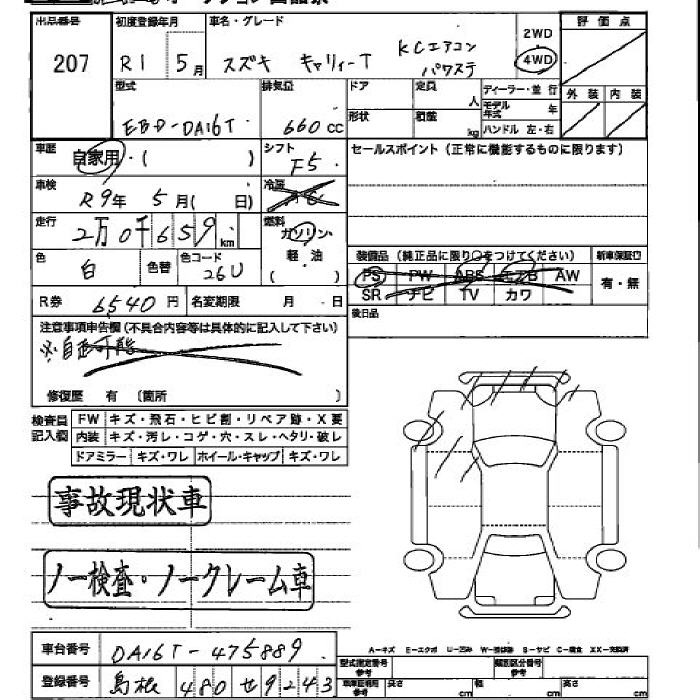 出品番号 初度登録年月 車名・グレード 評価点
207 R1 5月 スズキ キャリィーT KCエアコン パワステ 2WD 4WD
型式 排気量 ドア 定員 人 ディーラー・並行 外装 内装
EBD-DA16T 660cc 形状 積載 kg モデル年式 年 ハンドル 左・右
車歴 自家用・( ) シフト F5 セールスポイント (正常に機能するものに限ります)
車検 R9年 5月( 日) 冷房
走行 2万0千659km 燃料 ガソリン・軽油( )
色 白 色替 色コード 26U
装備品 (純正品に限り○をつけてください) 新車保証書
PS PW ABS エアB AW 有・無
SR ナビ TV カワ
R券 6540円 名変期限 月 日 後日品
注意事項申告欄(不具合内容等は具体的に記入して下さい)
修復歴 有 〔箇所 〕
検査員記入欄 FW キズ・飛石・ヒビ割・リペア跡・X要
内装 キズ・汚レ・コゲ・穴・スレ・ヘタリ・破レ
ドアミラー キズ・ワレ ホイール・キャップ キズ・ワレ
事故現状車
ノー検査・ノークレーム車
車台番号 DA16T-475889
登録番号 島根 480せ9243
A-キズ E-エクボ U-凹み W-補修跡 S-サビ C-腐食 XX-交換済
型式指定番号 参考 類別区分番号 参考
長さ cm 幅 cm 高さ cm